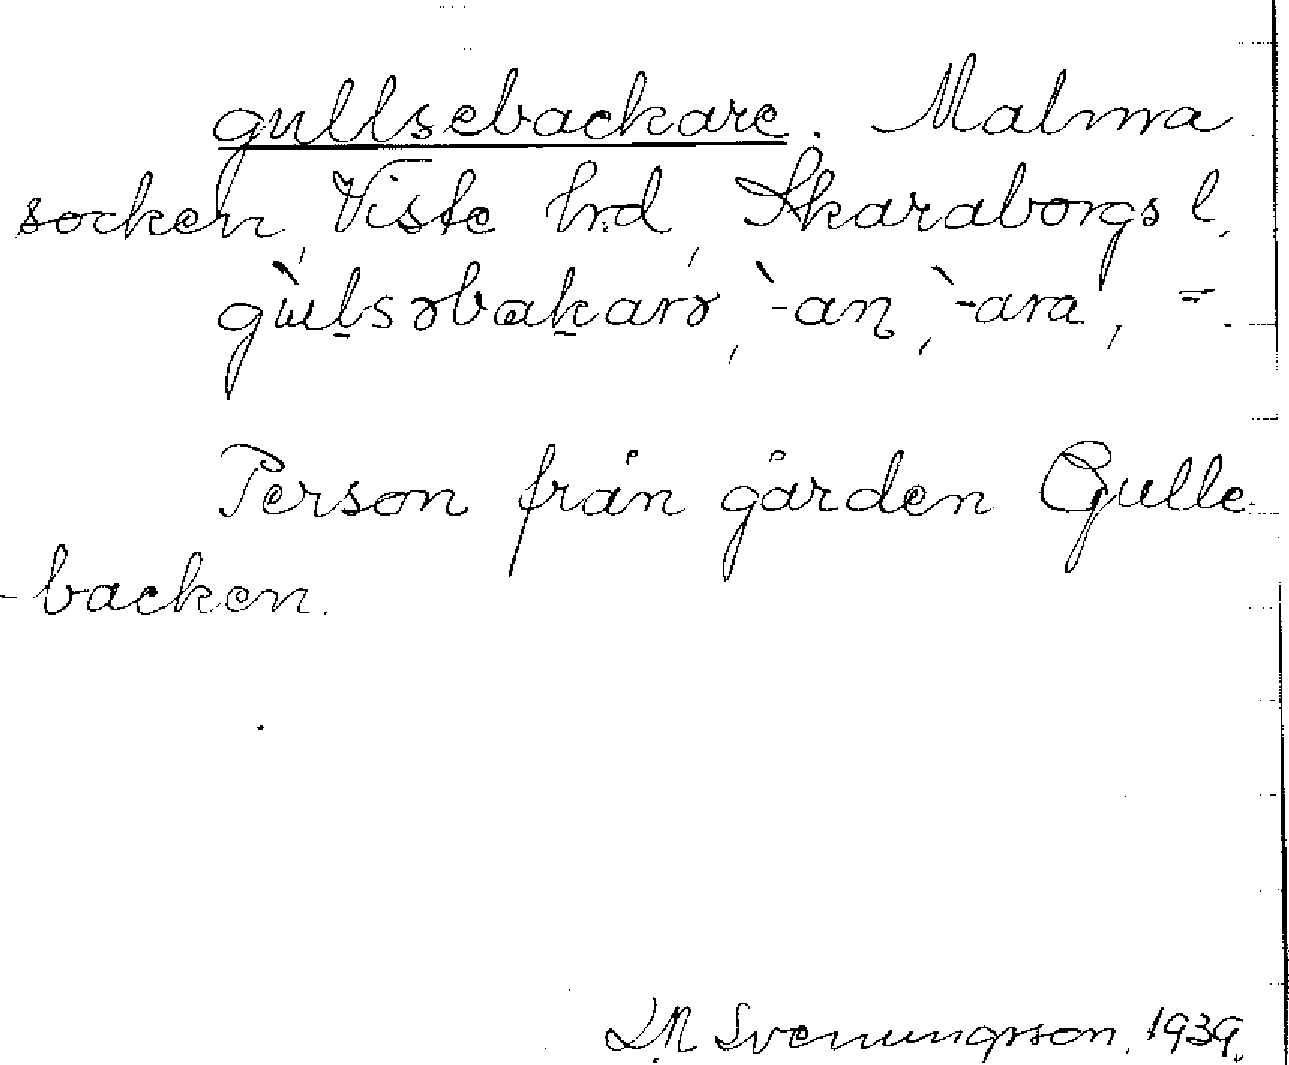 gullsebackare. Malma
socken, Viste hrd, Skaraborgs l.
gu̇lsəbakarə, `-an, `-ara, =.
Person från gården Gulle-
-backen.
Svenungsson. 1939.